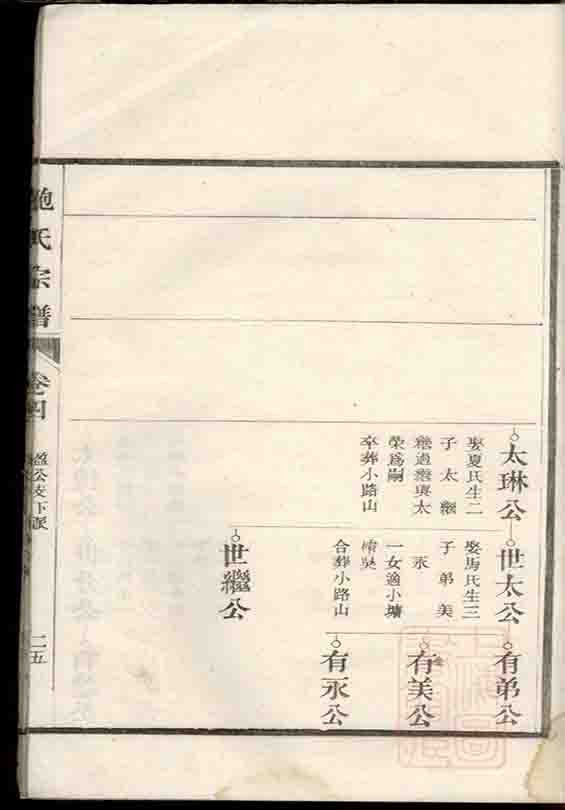 太琳公
娶夏氏生二
子太繼
繼過繼與太
榮爲嗣
卒葬小路山
世太公
娶馬氏生三
子弟美
永
一女適小塘
合葬小路山
世繼公
有弟公
有美公
有永公
鮑氏宗譜
卷四
盈公支下派
二五